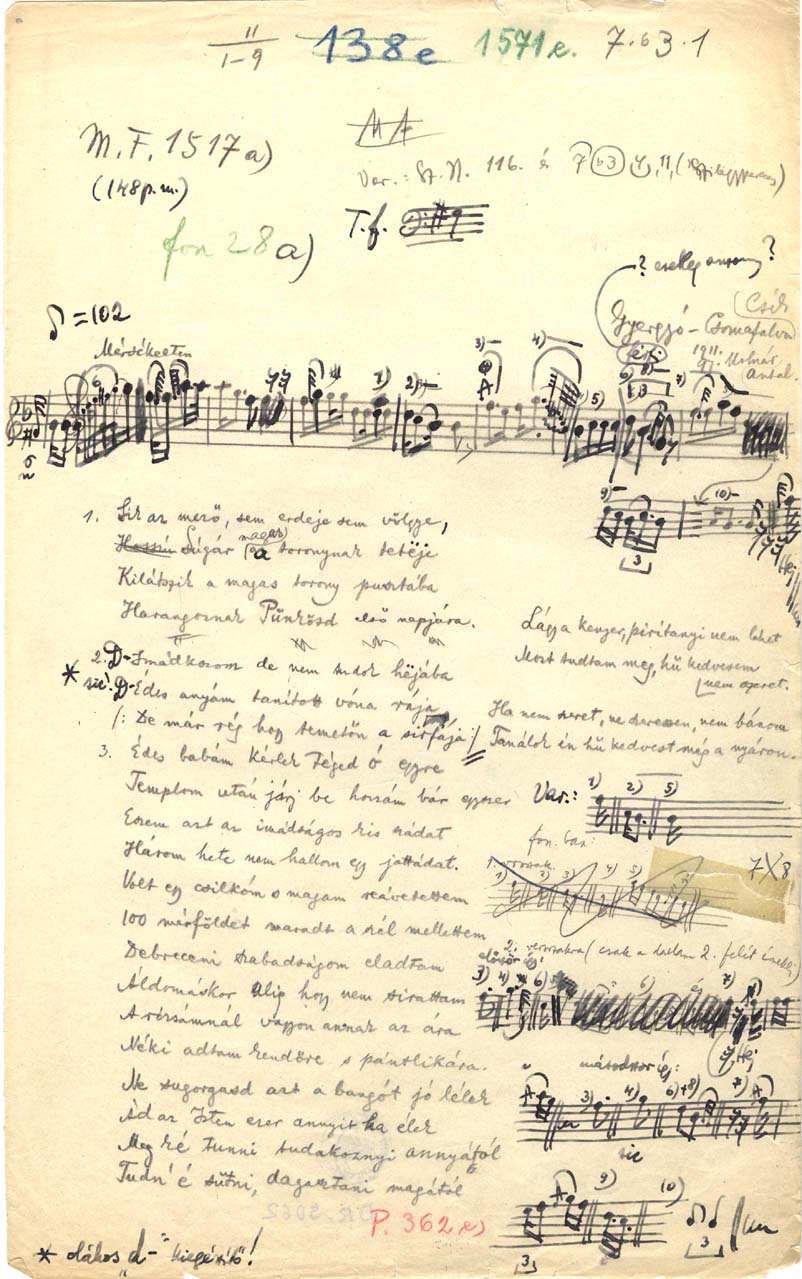 11
1-9
138e 1571e. 7.b3.1
M.F. 1517a)
(148p.m.)
Var.: Sz.N. 116. és 7 b3 4, 11,
T.f.
fon 28a)
? esetleg ?
Csík
Gyergyó-Csomafalva
férfi
1911. Molnár
Antal.
♪=102
Mérsékelten
1. Sík az mező, sem erdeje sem völgye,
Hosszú Súgár magas a toronynak teteje
Kilátszik a magas torony pusztába
Harangoznak Pünkösd első napjára.
2. D-Imádkozom de nem tudok héjába
* sic! D-Édes anyám tanitott vóna rája
/: De már rég hogy temetőn a sirfája :/
3. Édes babám kérlek Téged ó egyre
Templom után járj be hozzám bár egyszer
Eszem azt az imádságos kis szádat
Három hete nem hallom egy jottádat.
Volt egy csikóm s magam reávetettem
100 mérföldet maradt a szél mellettem
Debreceni szabadságom eladtam
Áldomáskor alig hogy nem sirattam
A rózsámnál vagyon annak az ára
Néki adtam kendőre s pántlikára.
Ne sugorgasd azt a bangót jó lélek
Ád az Isten ezer annyit ha élek
Meg ké tunni tudakoznyi annyától
Tudn' é sütni, dagasztani magától
Lágy a kenyer, piritanyi nem lehet
Most tudtam meg, hű kedvesem
nem szeret.
Ha nem szeret, ne szeressen, nem bánom
Tanálok én hű kedvest még a nyáron.
Var.: 1) 2) 5)
7X8
2. versszakra (csak a dallam 2. felét énekli)
először így:
3) 4) 6) 7)
Hej
másodszor így:
3) 4) 6)+8) 7)
sic
9) 10)
3 3
P. 362
* oláhos „d-" kiegészítő!